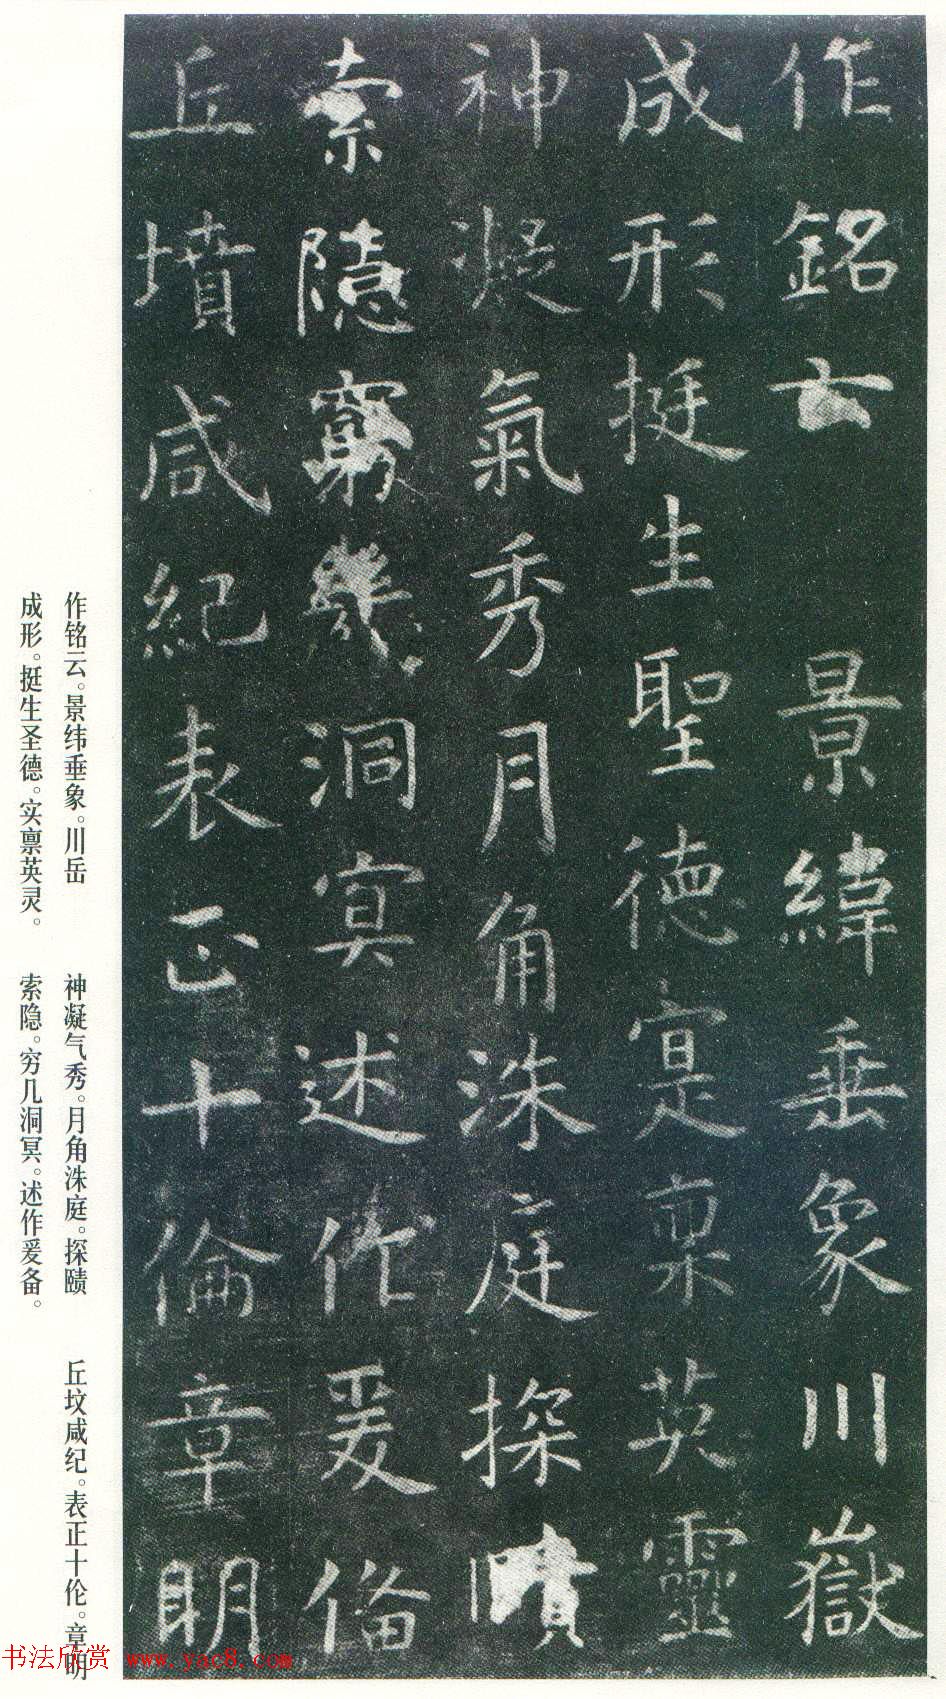 作銘云景緯垂象川嶽
成形挺生聖德寔稟英靈
神凝氣秀月角洙庭探賾
索隱窮幾洞冥述作爰俻
丘墳咸紀表正十倫章明
作铭云。景纬垂象。川岳
成形。挺生圣德。实禀英灵。
神凝气秀。月角洙庭。探赜
索隐。穷几洞冥。述作爰备。
丘坟咸纪。表正十伦。章明
书法欣赏 www.yac8.com